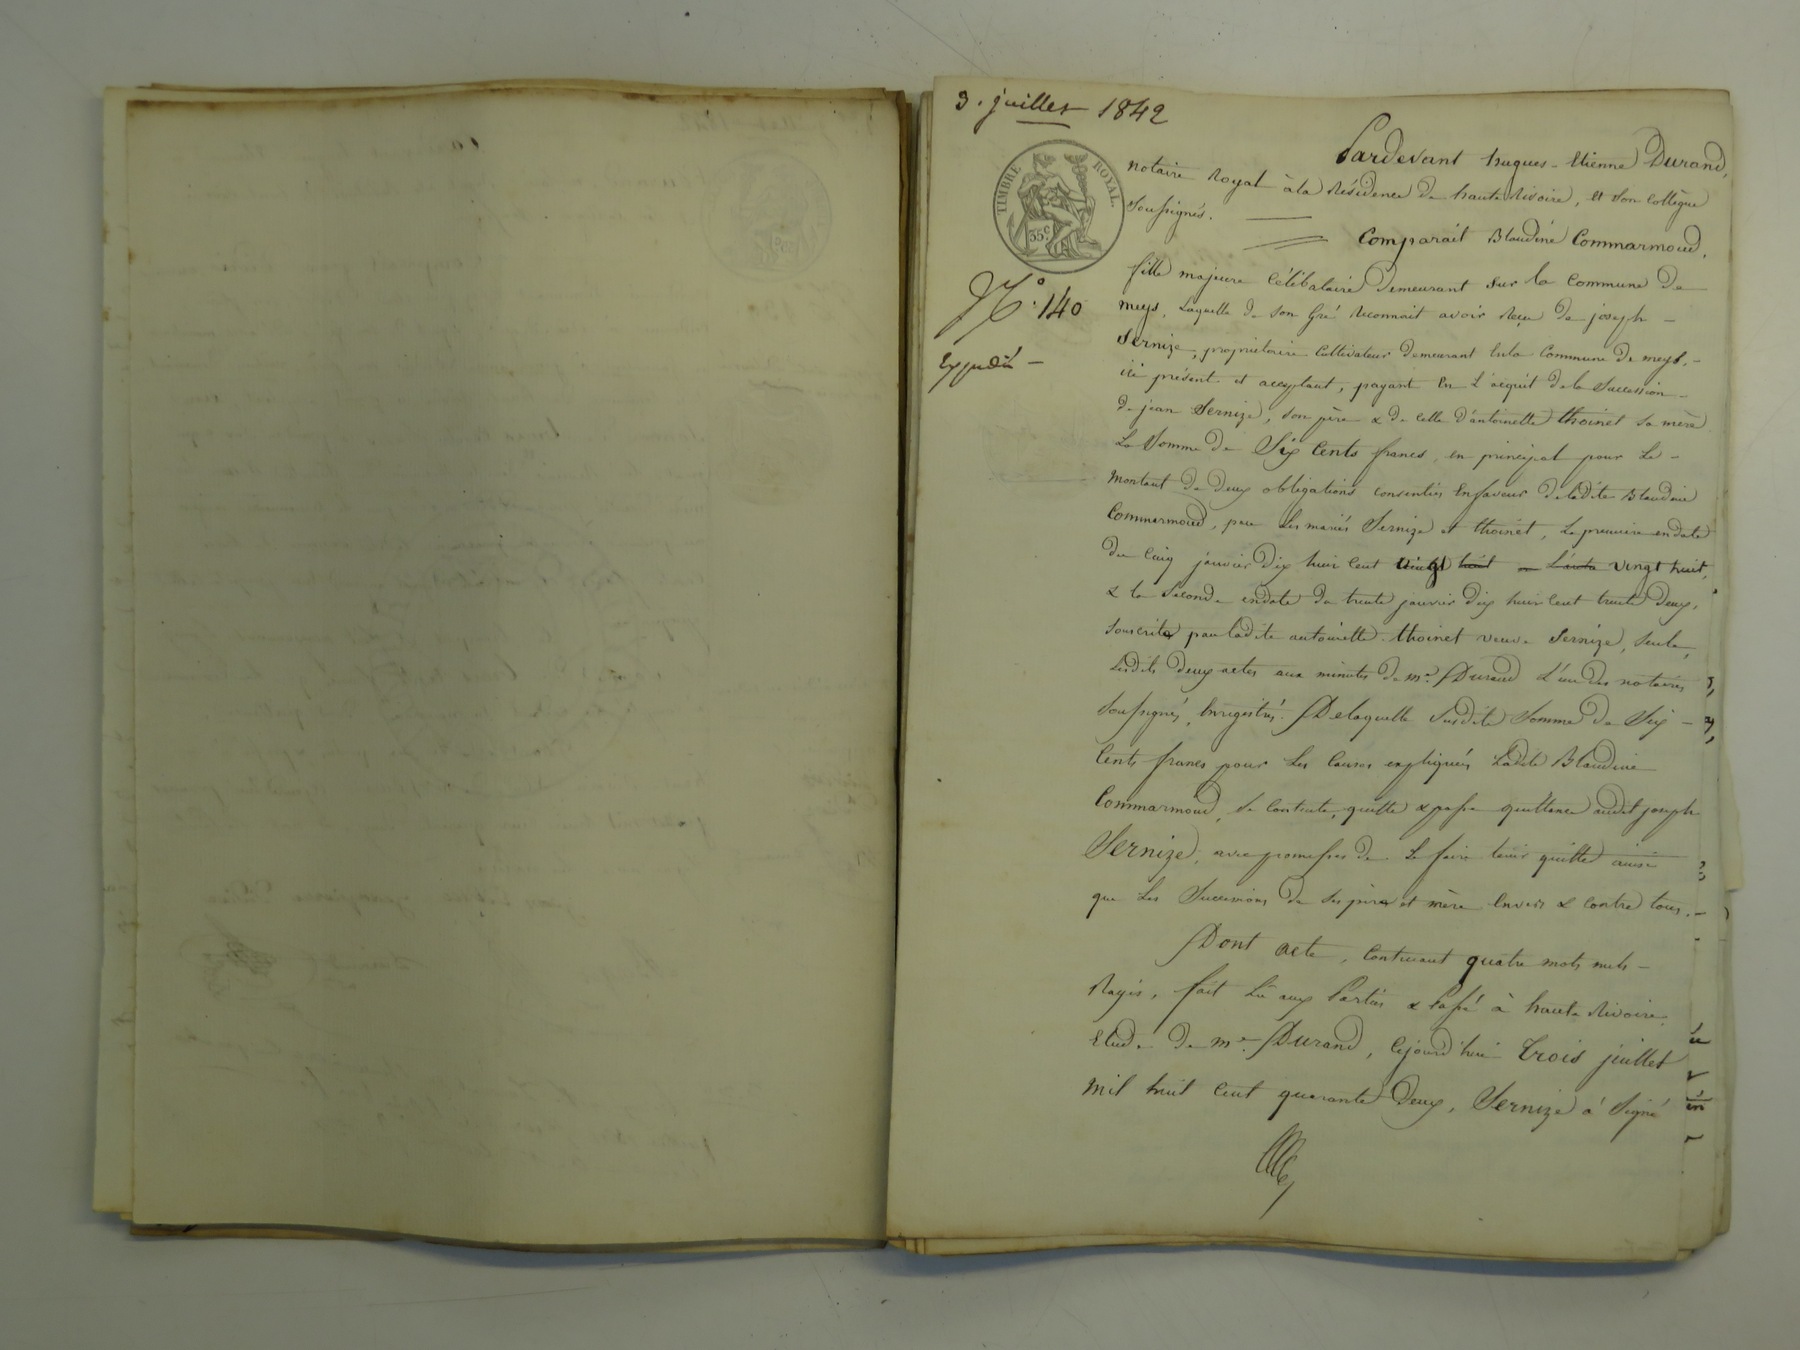 3. juillet 1842
TIMBRE ROYAL.
35c
N° 140
Expédié —
Pardevant hugues - Etienne Durand,
notaire Royal à la Résidence de haute Rivoire, et son collègue
soussignés.
Comparait Blaudine Commarmond,
fille majeure Célibataire demeurant sur la Commune de
meys, laquelle de son Gré Reconnait avoir Reçu de joseph —
Sernize, propriétaire Cultivateur demeurant en la Commune de meys. —
ici présent et acceptant, payant en L'acquit de la Succession —
de jean Sernize, son père & de celle d'antoinette thoinet sa mère
La Somme de Six Cents francs, en principal pour Le —
montant de deux obligations consenties En faveur de ladite Blaudine
Commarmond, par les mariés Sernize et thoinet, La première en date
du Cinq janvier dix huit Cent vingt huit L'autre vingt huit,
& la Seconde en date du trente janvier dix huit Cent trente deux,
Souscrite par ladite antoinette thoinet veuve Sernize, seule,
Lesdits deux actes aux minutes de me. Durand L'un des notaires
Soussignés, Enrégistrés. De laquelle Susdite Somme de Six —
Cents francs pour les Causes expliquées Ladite Blaudine
Commarmond, se Contente, quitte & passe quittance audit joseph
Sernize, avec promesses de Le faire tenir quitte ainsi
que les Successions de ses père et mère Envers & contre tous. —
Dont acte, Contenant quatre mots nuls —
Rayés, fait Lû aux Parties & Passé à haute Rivoire,
Etude de me. Durand, Cejourd'hui trois juillet
mil huit Cent quarante deux, Sernize a Signé